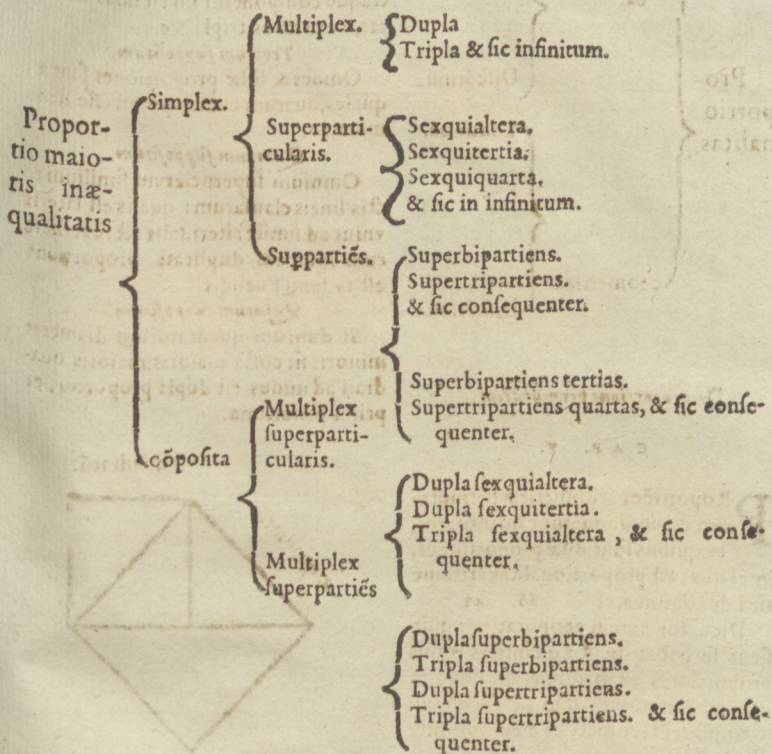 Propor-
tio maio-
ris inæ-
qualitatis
Simplex.
Multiplex.
Dupla
Tripla & ſic infinitum.
Superparti-
cularis.
Sexquialtera.
Sexquitertia.
Sexquiquarta.
& ſic in infinitum.
Suꝑpartiẽs.
Superbipartiens.
Supertripartiens.
& ſic conſequenter.
Superbipartiens tertias.
Supertripartiens quartas, & ſic conſe-
quenter.
cõpoſita
Multiplex
ſuperparti-
cularis.
Dupla ſexquialtera.
Dupla ſexquitertia.
Tripla ſexquialtera, & ſic conſe-
quenter.
Multiplex
ſuperpartiẽs
Dupla ſuperbipartiens.
Tripla ſuperbipartiens.
Dupla ſupertripartiens.
Tripla ſupertripartiens. & ſic conſe-
quenter.